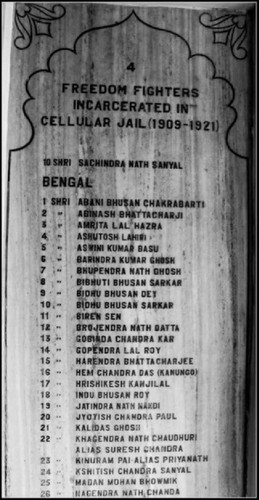 4
FREEDOM FIGHTERS
INCARCERATED IN
CELLULAR JAIL (1909-1921)
10 SHRI SACHINDRA NATH SANYAL
BENGAL
1 SHRI ABANI BHUSAN CHAKRABARTI
2 " ABINASH BHATTACHARJI
3 " AMRITA LAL HAZRA
4 " ASHUTOSH LAHIRI
5 " ASWINI KUMAR BASU
6 " BARINDRA KUMAR GHOSH
7 " BHUPENDRA NATH GHOSH
8 " BIBHUTI BHUSAN SARKAR
9 " BIDHU BHUSAN DEY
10 " BIDHU BHUSAN SARKAR
11 " BIREN SEN
12 " BROJENDRA NATH DATTA
13 " GOBINDA CHANDRA KAR
14 " GOPENDRA LAL ROY
15 " HARENDRA BHATTACHARJEE
16 " HEM CHANDRA DAS (KANUNGO)
17 " HRISHIKESH KANJILAL
18 " INDU BHUSAN ROY
19 " JATINDRA NATH NANDI
20 " JYOTISH CHANDRA PAUL
21 " KALIDAS GHOSH
22 " KHAGENDRA NATH CHAUDHURI
ALIAS SURESH CHANDRA
23 " KINURAM PAI ALIAS PRIYANATH
24 " KSHITISH CHANDRA SANYAL
25 " MADAN MOHAN BHOWMIK
26 " NAGENDRA NATH CHANDA